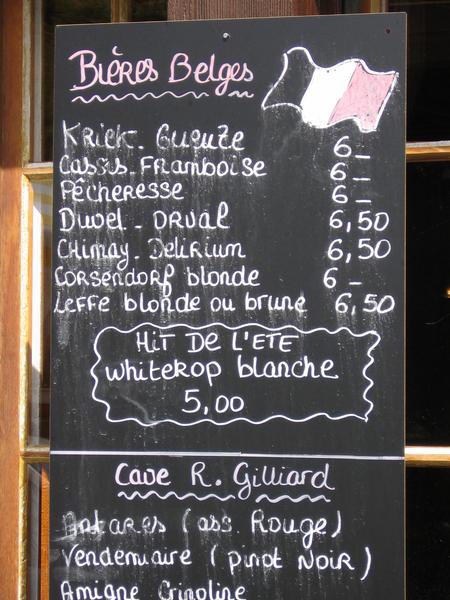 Bières Belges
Kriek. Gueuze 6_
Cassis. Framboise 6_
Pêcheresse 6_
Duvel. Orval 6,50
Chimay. Delirium 6,50
Corsendorf blonde 6_
Leffe blonde ou brune 6,50
Hit de l'ete
whitekop blanche
5,00
Cave R. Gilliard
Antares (ass. Rouge)
Vendemiaire (pinot Noir)
Amigne Crinoline